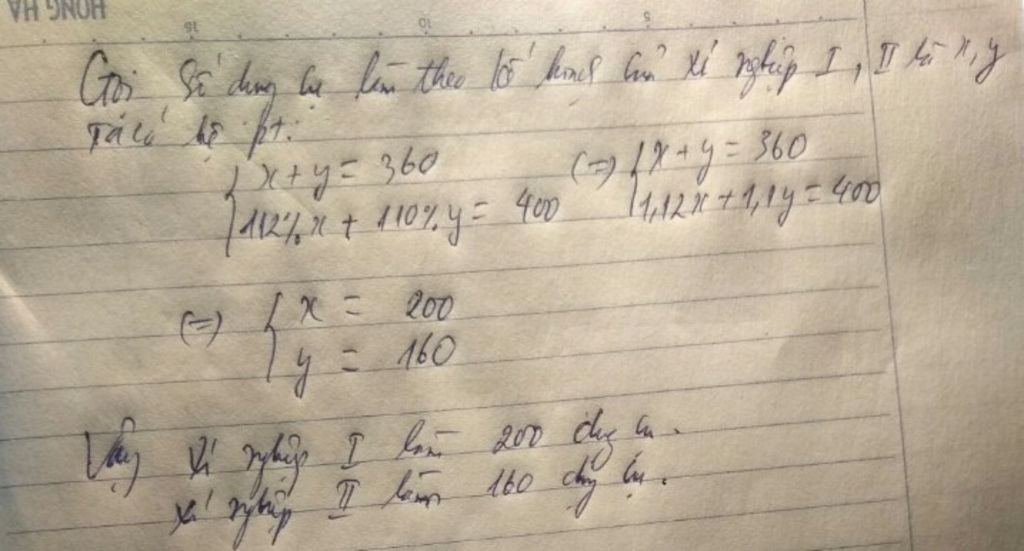 HONG HA
16 10 5
Gọi số dụng cụ làm theo kế hoạch của xí nghiệp I, II là x, y
Ta có hệ pt:
{ x + y = 360 (=) { x + y = 360
{ 112% x + 110% y = 400 { 1,12x + 1,1y = 400
(=) { x = 200
{ y = 160
Vậy xí nghiệp I làm 200 dụng cụ.
xí nghiệp II làm 160 dụng cụ.